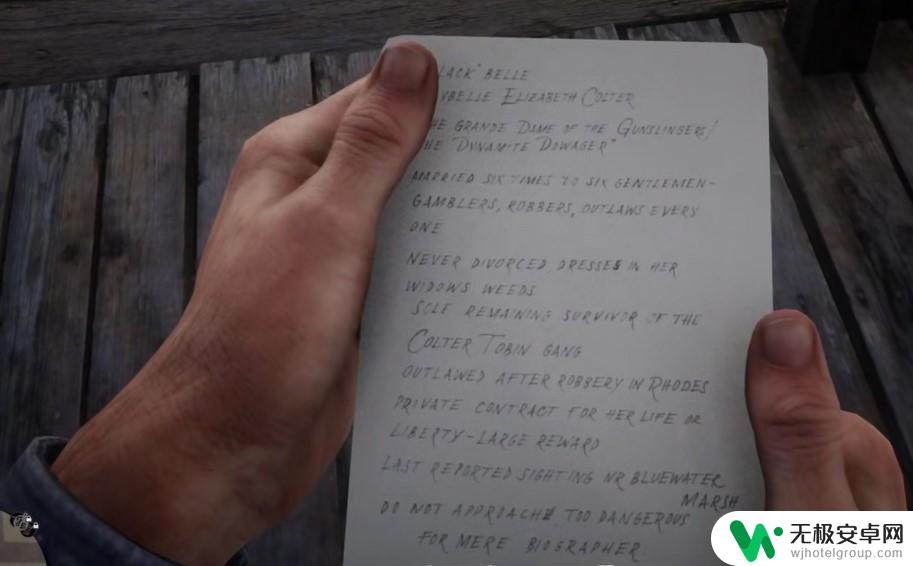 LACK" BELLE
YBELLE ELIZABETH COLTER
HE GRANDE DAME OF THE GUNSLINGERS/
HE "DYNAMITE DOWAGER"
MARRIED SIX TIMES TO SIX GENTLEMEN-
GAMBLERS, ROBBERS, OUTLAWS EVERY
ONE
NEVER DIVORCED, DRESSES IN HER
WIDOWS WEEDS
SOLE REMAINING SURVIVOR OF THE
COLTER TOBIN GANG
OUTLAWED AFTER ROBBERY IN RHODES
PRIVATE CONTRACT FOR HER LIFE OR
LIBERTY-LARGE REWARD
LAST REPORTED SIGHTING NR BLUEWATER
MARSH
DO NOT APPROACH, TOO DANGEROUS
FOR MERE BIOGRAPHER.
无极安卓网
wjhotelgroup.com